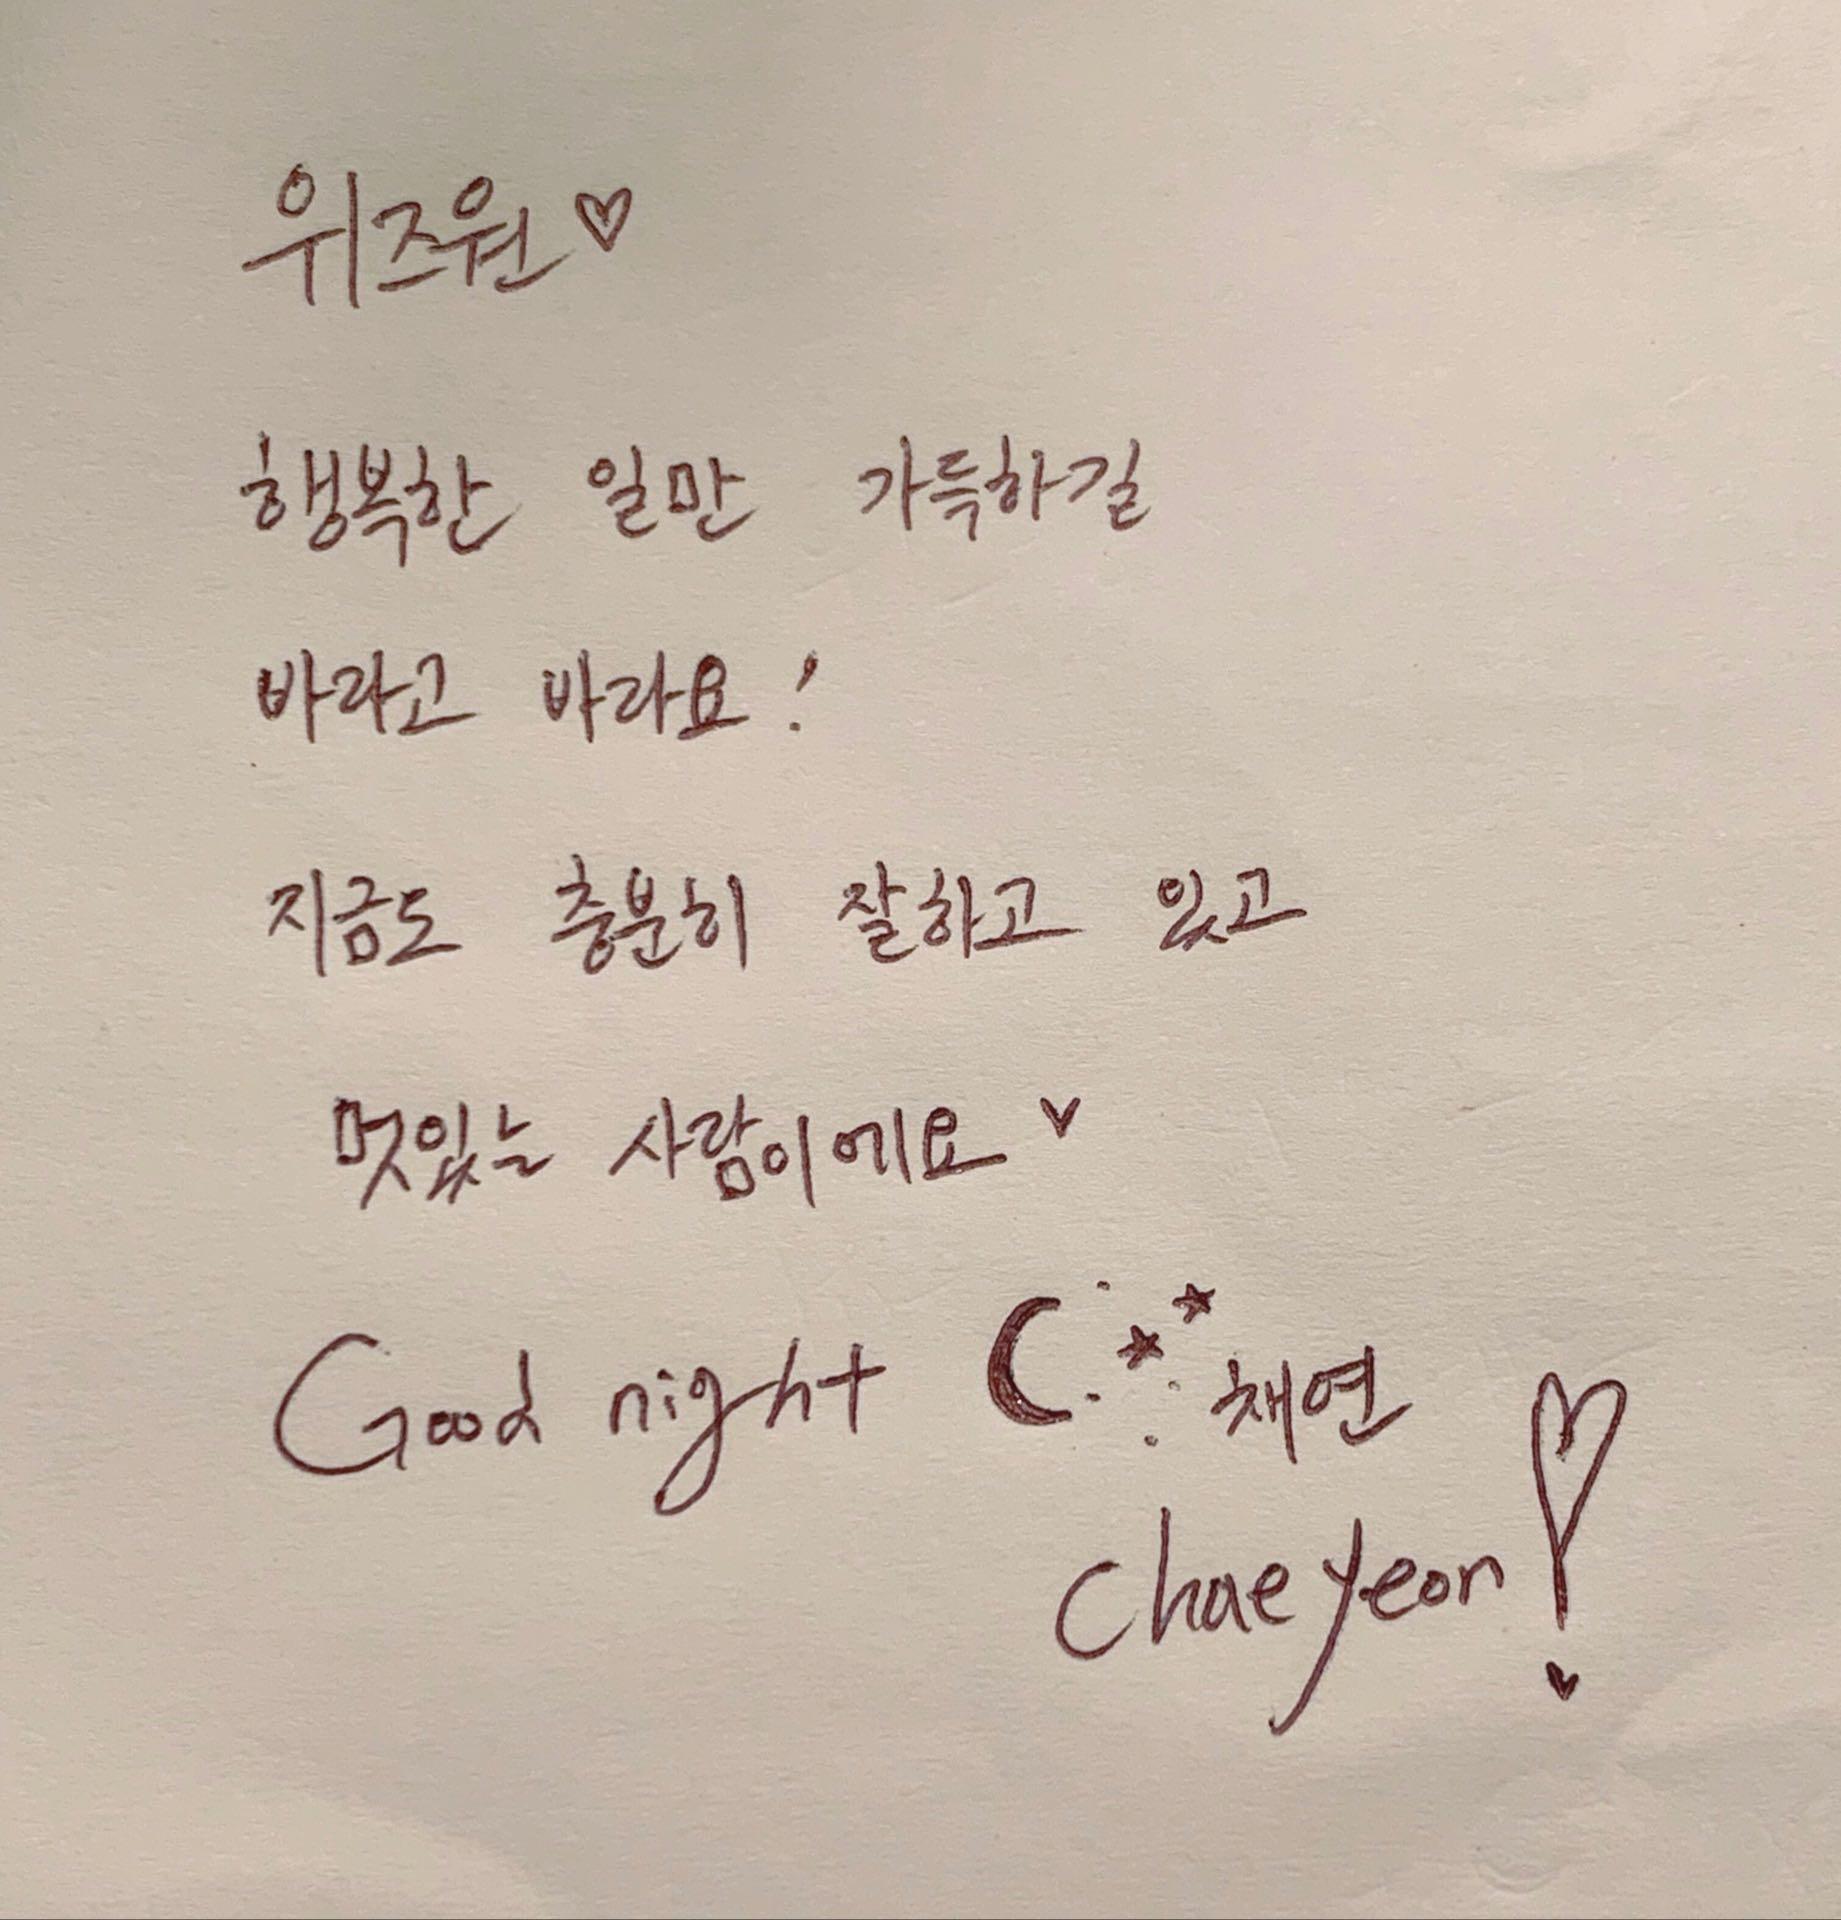 위즈원♡
행복한 일만 가득하길
바라고 바라요!
지금도 충분히 잘하고 있고
멋있는 사람이에요♥
Good night 채연
chaeyeon